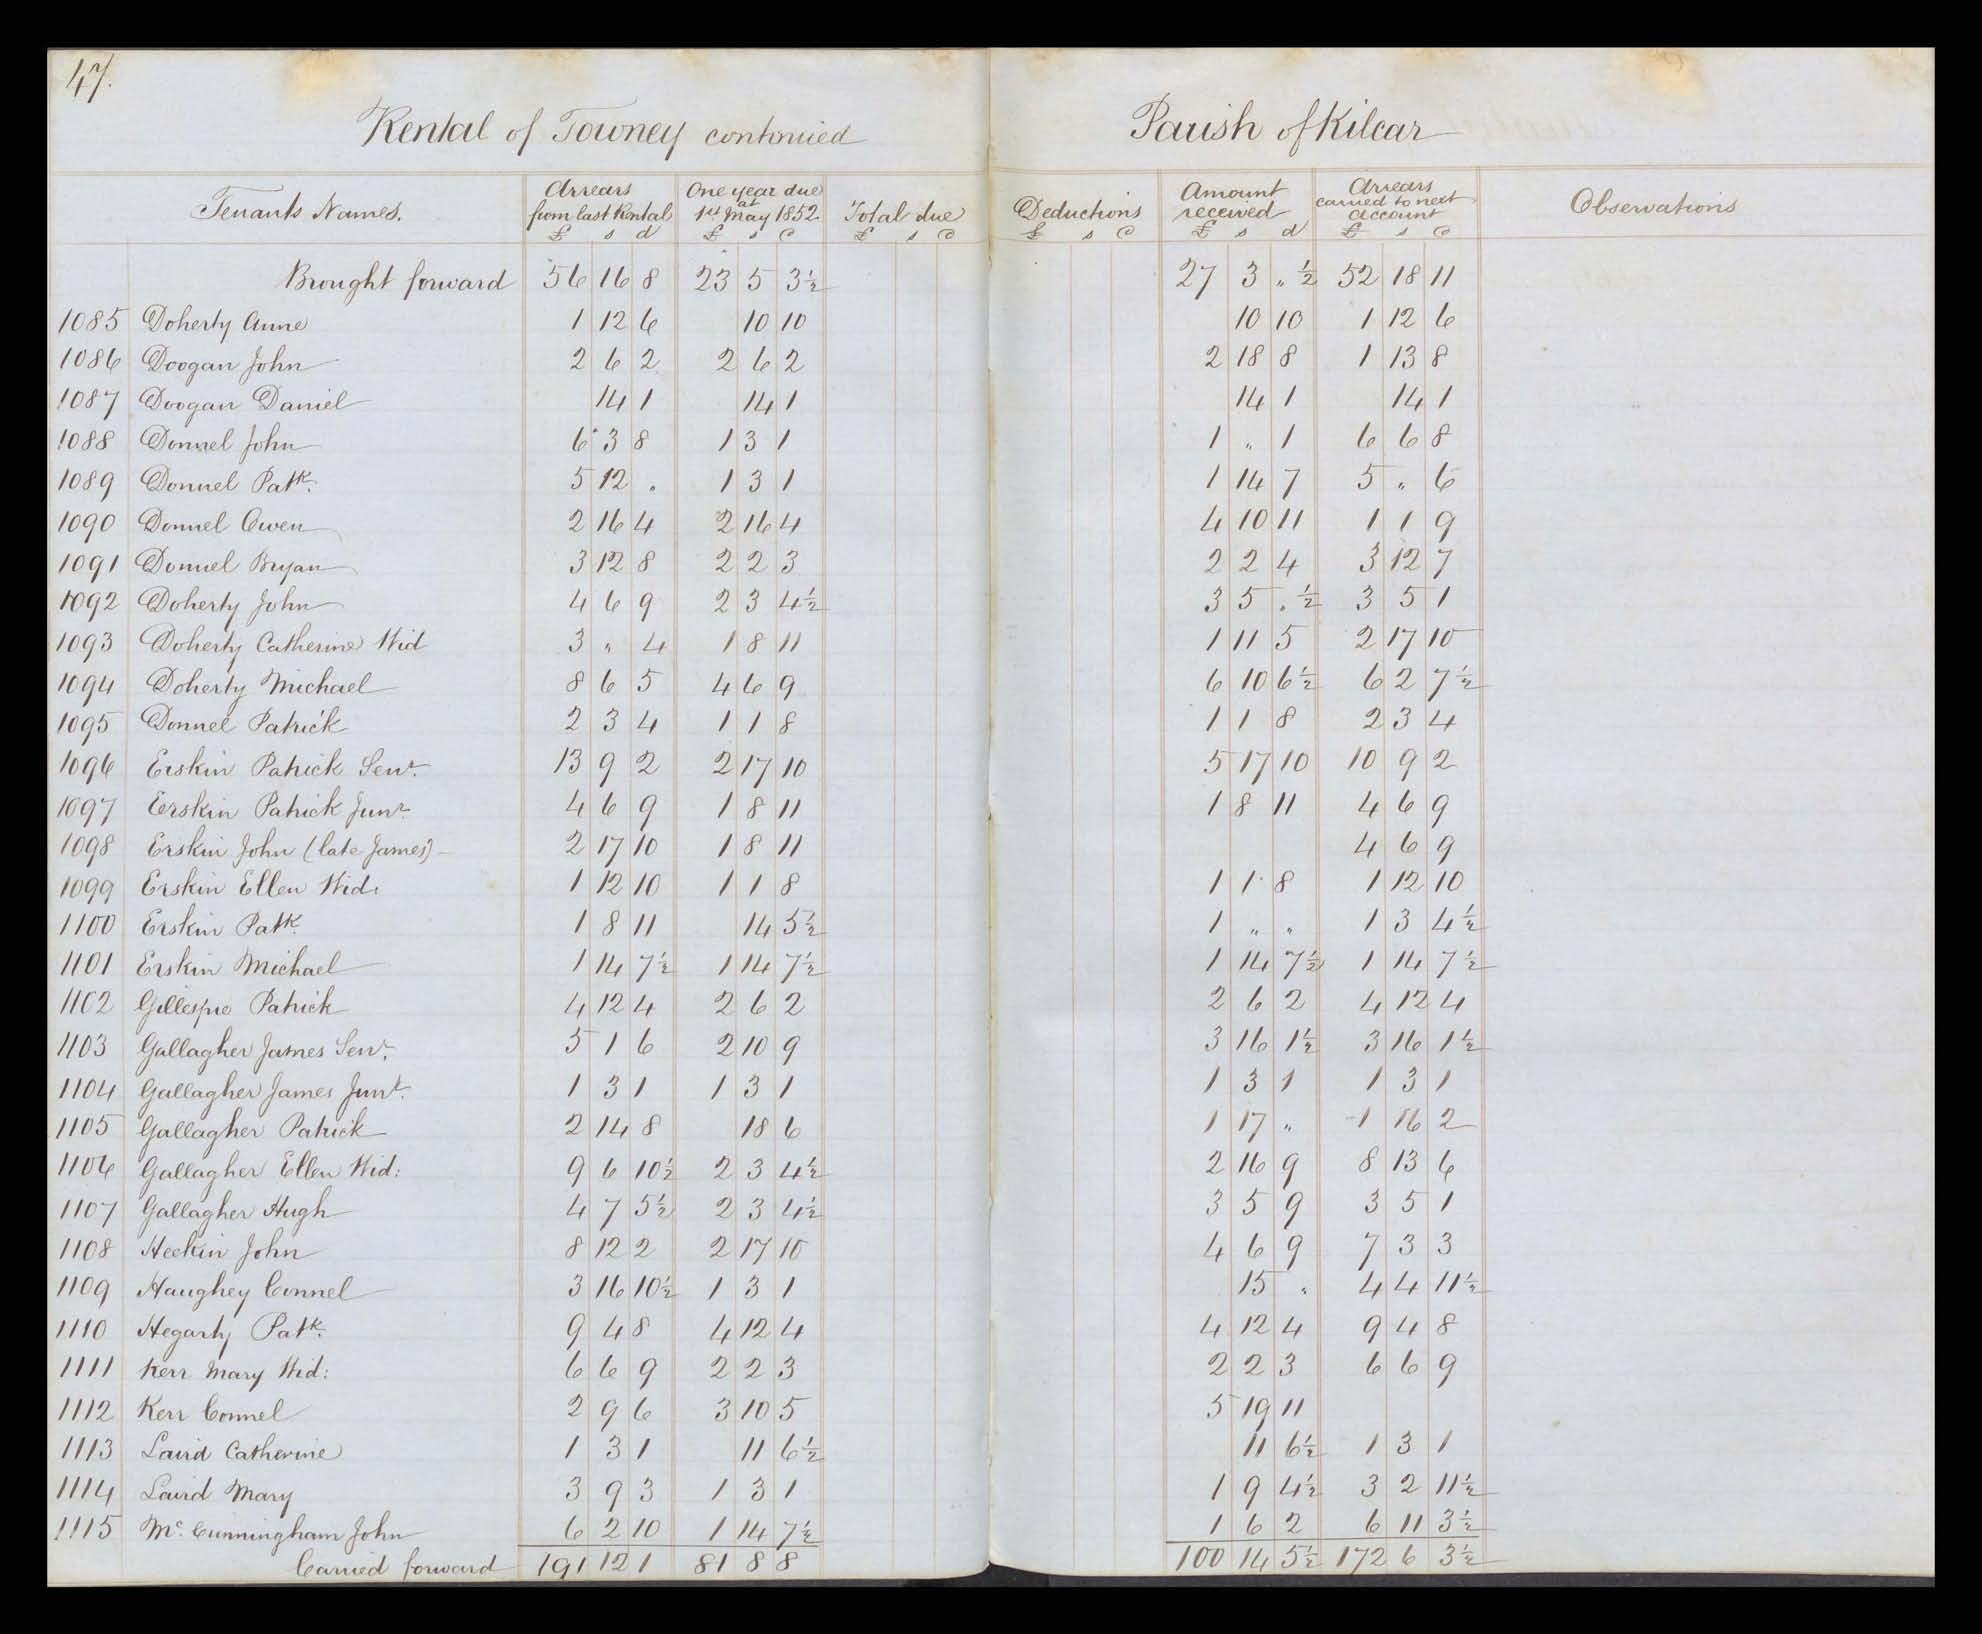 47.
Rental of Towney continued Parish of Kilcar
Tenants Names. Arrears from last Rental £ s d One year due at 1st May 1852 £ s d Total due £ s d Deductions £ s d Amount received £ s d Arrears carried to next account £ s d Observations
Brought forward 56 16 8 23 5 3½ 27 3 „ ½ 52 18 11
1085 Doherty Anne 1 12 6 10 10 10 10 1 12 6
1086 Doogan John 2 6 2 2 6 2 2 18 8 1 13 8
1087 Doogan Daniel 14 1 14 1 14 1 14 1
1088 Donnel John 6 3 8 1 3 1 1 „ 1 6 6 8
1089 Donnel Patk. 5 12 . 1 3 1 1 14 7 5 „ 6
1090 Donnel Owen 2 16 4 2 16 4 4 10 11 1 1 9
1091 Donnel Bryan 3 12 8 2 2 3 2 2 4 3 12 7
1092 Doherty John 4 6 9 2 3 4½ 3 5 . ½ 3 5 1
1093 Doherty Catherine Wid 3 „ 4 1 8 11 1 11 5 2 17 10
1094 Doherty Michael 8 6 5 4 6 9 6 10 6½ 6 2 7½
1095 Donnel Patrick 2 3 4 1 1 8 1 1 8 2 3 4
1096 Erskin Patrick Senr. 13 9 2 2 17 10 5 17 10 10 9 2
1097 Eerskin Patrick Junr. 4 6 9 1 8 11 1 8 11 4 6 9
1098 Erskin John (late James) 2 17 10 1 8 11 4 6 9
1099 Erskin Ellen Wid: 1 12 10 1 1 8 1 1 8 1 12 10
1100 Erskin Patk. 1 8 11 14 5½ 1 „ „ 1 3 4½
1101 Erskin Michael 1 14 7½ 1 14 7½ 1 14 7½ 1 14 7½
1102 Gillespie Patrick 4 12 4 2 6 2 2 6 2 4 12 4
1103 Gallagher James Senr. 5 1 6 2 10 9 3 16 1½ 3 16 1½
1104 Gallagher James Junr. 1 3 1 1 3 1 1 3 1 1 3 1
1105 Gallagher Patrick 2 14 8 18 6 1 17 „ 1 16 2
1106 Gallagher Ellen Wid: 9 6 10½ 2 3 4½ 2 16 9 8 13 6
1107 Gallagher Hugh 4 7 5½ 2 3 4½ 3 5 9 3 5 1
1108 Heekin John 8 12 2 2 17 10 4 6 9 7 3 3
1109 Haughey Connel 3 16 10½ 1 3 1 15 „ 4 4 11½
1110 Hegarty Patk. 9 4 8 4 12 4 4 12 4 9 4 8
1111 Kerr Mary Wid: 6 6 9 2 2 3 2 2 3 6 6 9
1112 Kerr Connel 2 9 6 3 10 5 5 19 11
1113 Laird Catherine 1 3 1 11 6½ 11 6½ 1 3 1
1114 Laird Mary 3 9 3 1 3 1 1 9 4½ 3 2 11½
1115 Mc. Cunningham John 6 2 10 1 14 7½ 1 6 2 6 11 3½
Carried forward 191 12 1 81 8 8 100 14 5½ 172 6 3½